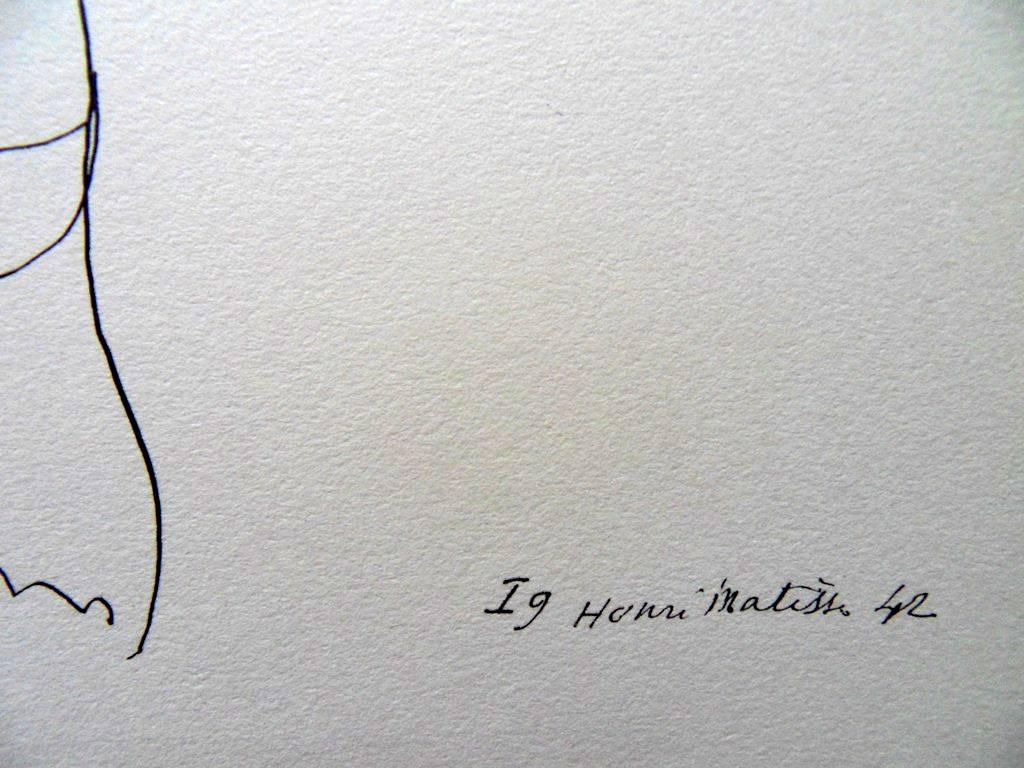 I9 Henri Matisse 42